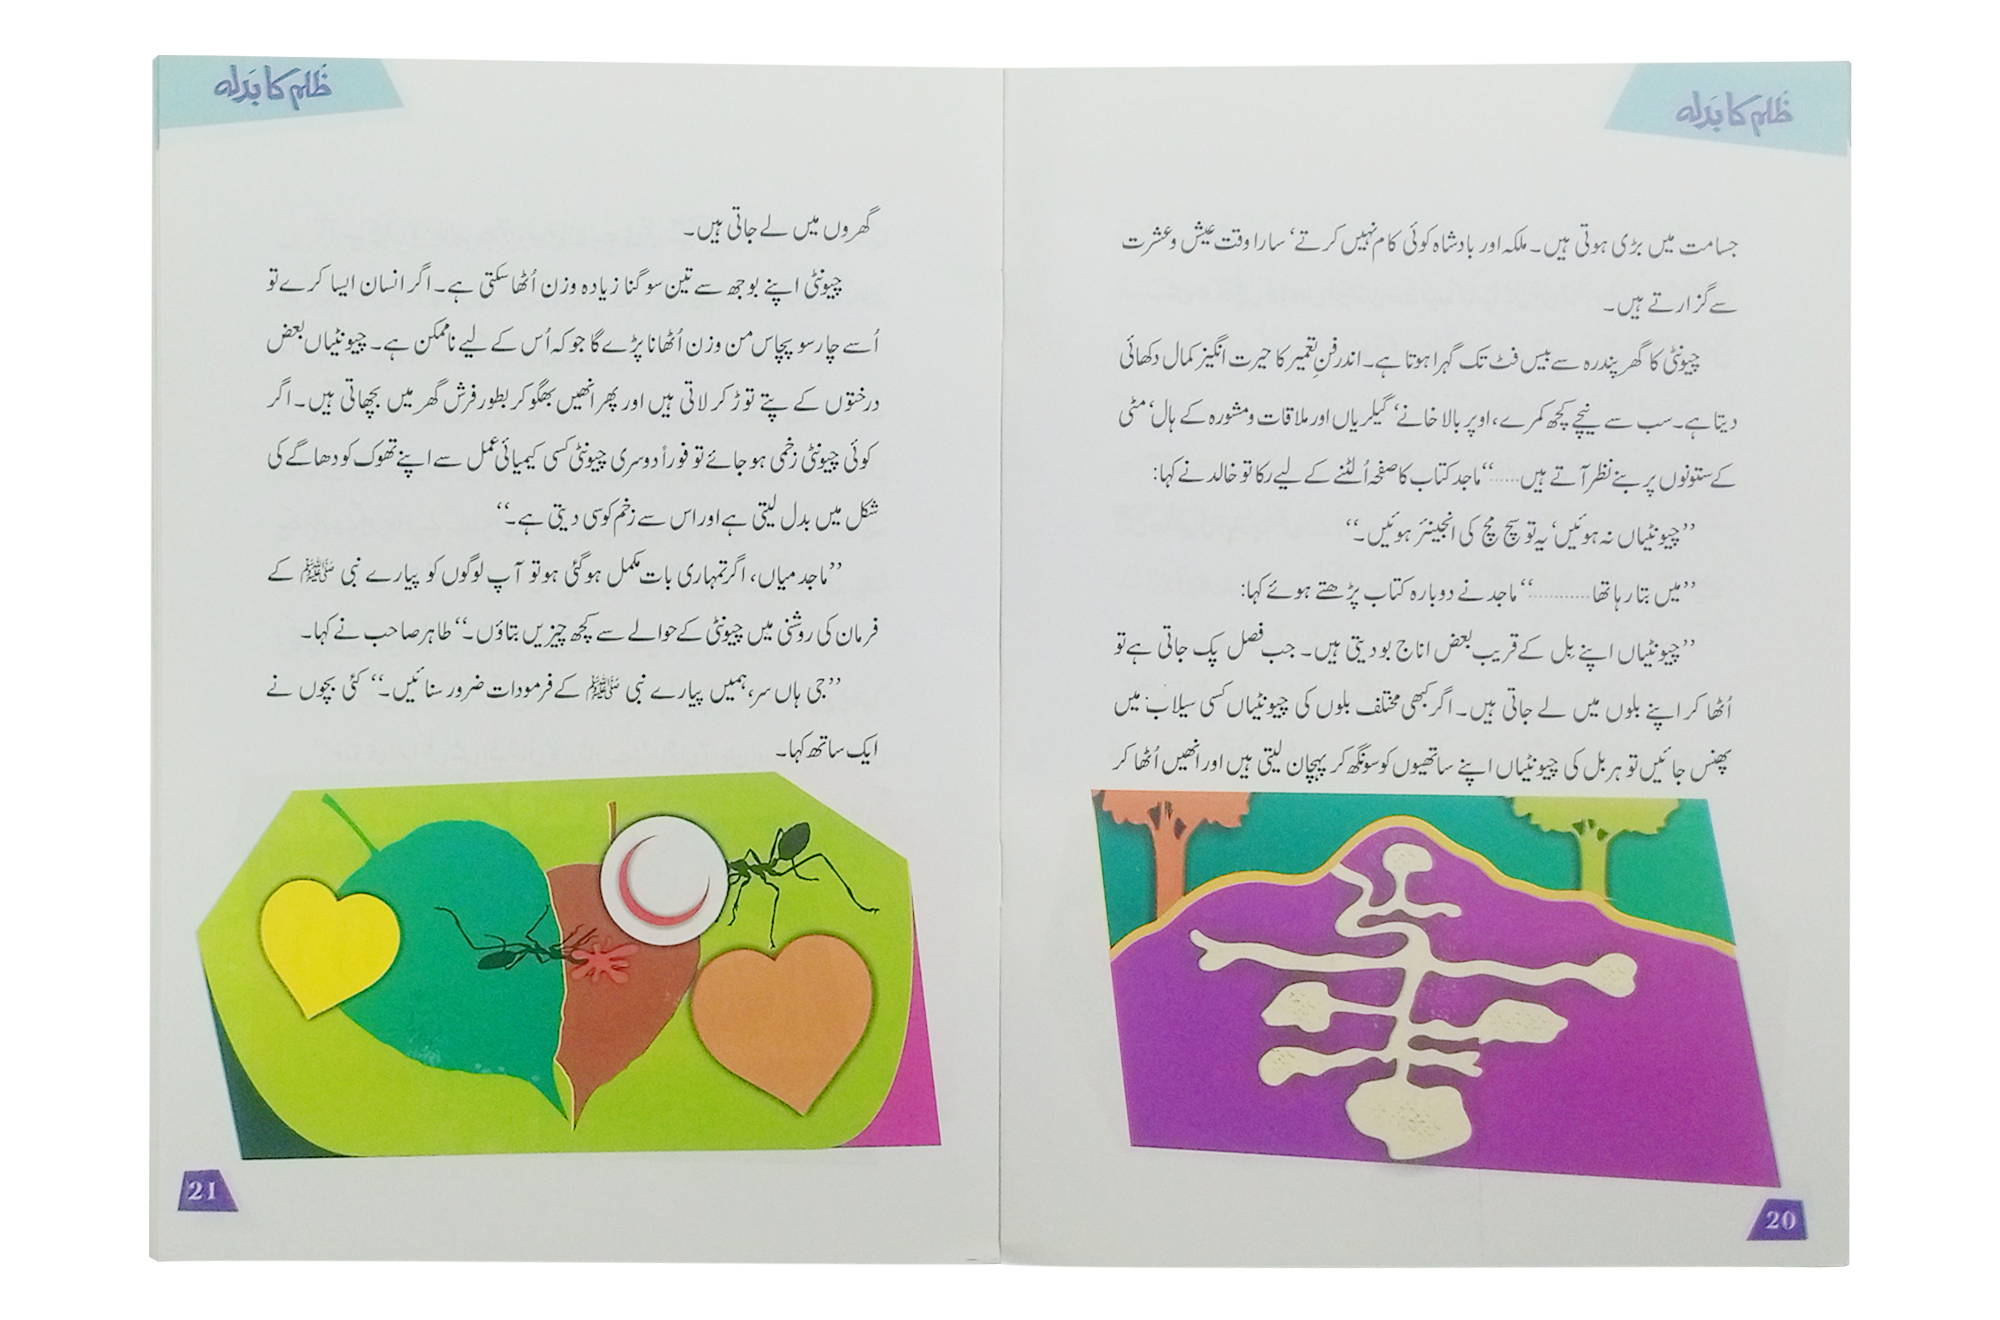 ظلم کا بدلہ
جسامت میں بڑی ہوتی ہیں۔ ملکہ اور بادشاہ کوئی کام نہیں کرتے‘ سارا وقت عیش و عشرت
سے گزارتے ہیں۔
چیونٹی کا گھر پندرہ سے بیس فٹ تک گہرا ہوتا ہے۔ اندر فنِ تعمیر کا حیرت انگیز کمال دکھائی
دیتا ہے۔ سب سے نیچے کچھ کمرے، اوپر بالا خانے‘ گیلریاں اور ملاقات و مشورہ کے ہال‘ مٹی
کے ستونوں پر بنے نظر آتے ہیں......‘‘ ماجد کتاب کا صفحہ اُلٹنے کے لیے رکا تو خالد نے کہا:
’’چیونٹیاں نہ ہوئیں‘ یہ تو سچ مچ کی انجینئر ہوئیں۔‘‘
’’میں بتا رہا تھا ............‘‘ ماجد نے دوبارہ کتاب پڑھتے ہوئے کہا:
’’چیونٹیاں اپنے بِل کے قریب بعض اناج بو دیتی ہیں۔ جب فصل پک جاتی ہے تو
اُٹھا کر اپنے بلوں میں لے جاتی ہیں۔ اگر کبھی مختلف بلوں کی چیونٹیاں کسی سیلاب میں
پھنس جائیں تو ہر بل کی چیونٹیاں اپنے ساتھیوں کو سونگھ کر پہچان لیتی ہیں اور انھیں اُٹھا کر
20
ظلم کا بدلہ
گھروں میں لے جاتی ہیں۔
چیونٹی اپنے بوجھ سے تین سو گنا زیادہ وزن اُٹھا سکتی ہے۔ اگر انسان ایسا کرے تو
اُسے چار سو پچاس من وزن اُٹھانا پڑے گا جو کہ اُس کے لیے ناممکن ہے۔ چیونٹیاں بعض
درختوں کے پتے توڑ کر لاتی ہیں اور پھر انھیں بھگو کر بطور فرش گھر میں بچھاتی ہیں۔ اگر
کوئی چیونٹی زخمی ہو جائے تو فوراً دوسری چیونٹی کسی کیمیائی عمل سے اپنے تھوک کو دھاگے کی
شکل میں بدل لیتی ہے اور اس سے زخم کو سی دیتی ہے۔‘‘
’’ماجد میاں، اگر تمہاری بات مکمل ہو گئی ہو تو آپ لوگوں کو پیارے نبی ﷺ کے
فرمان کی روشنی میں چیونٹی کے حوالے سے کچھ چیزیں بتاؤں۔‘‘ طاہر صاحب نے کہا۔
’’جی ہاں سر، ہمیں پیارے نبی ﷺ کے فرمودات ضرور سنائیں۔‘‘ کئی بچوں نے
ایک ساتھ کہا۔
21